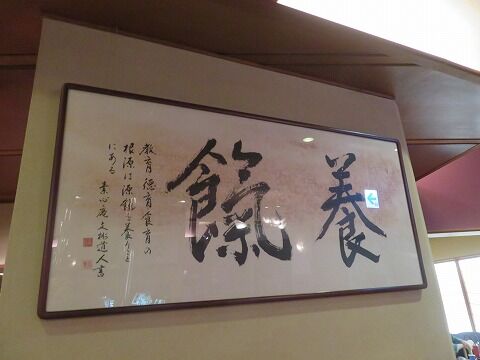 養餼
教育徳育食育の
根源は源餼を養うこと
にある 素心庵 道人書